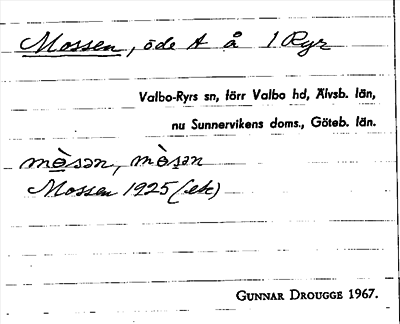 Mossen, öde t å 1 Ryr
Valbo-Ryrs sn, förr Valbo hd, Älvsb. län,
nu Sunnervikens doms., Göteb. län.
mòsən, mòsən
Mossen 1925 (ek)
GUNNAR DROUGGE 1967.